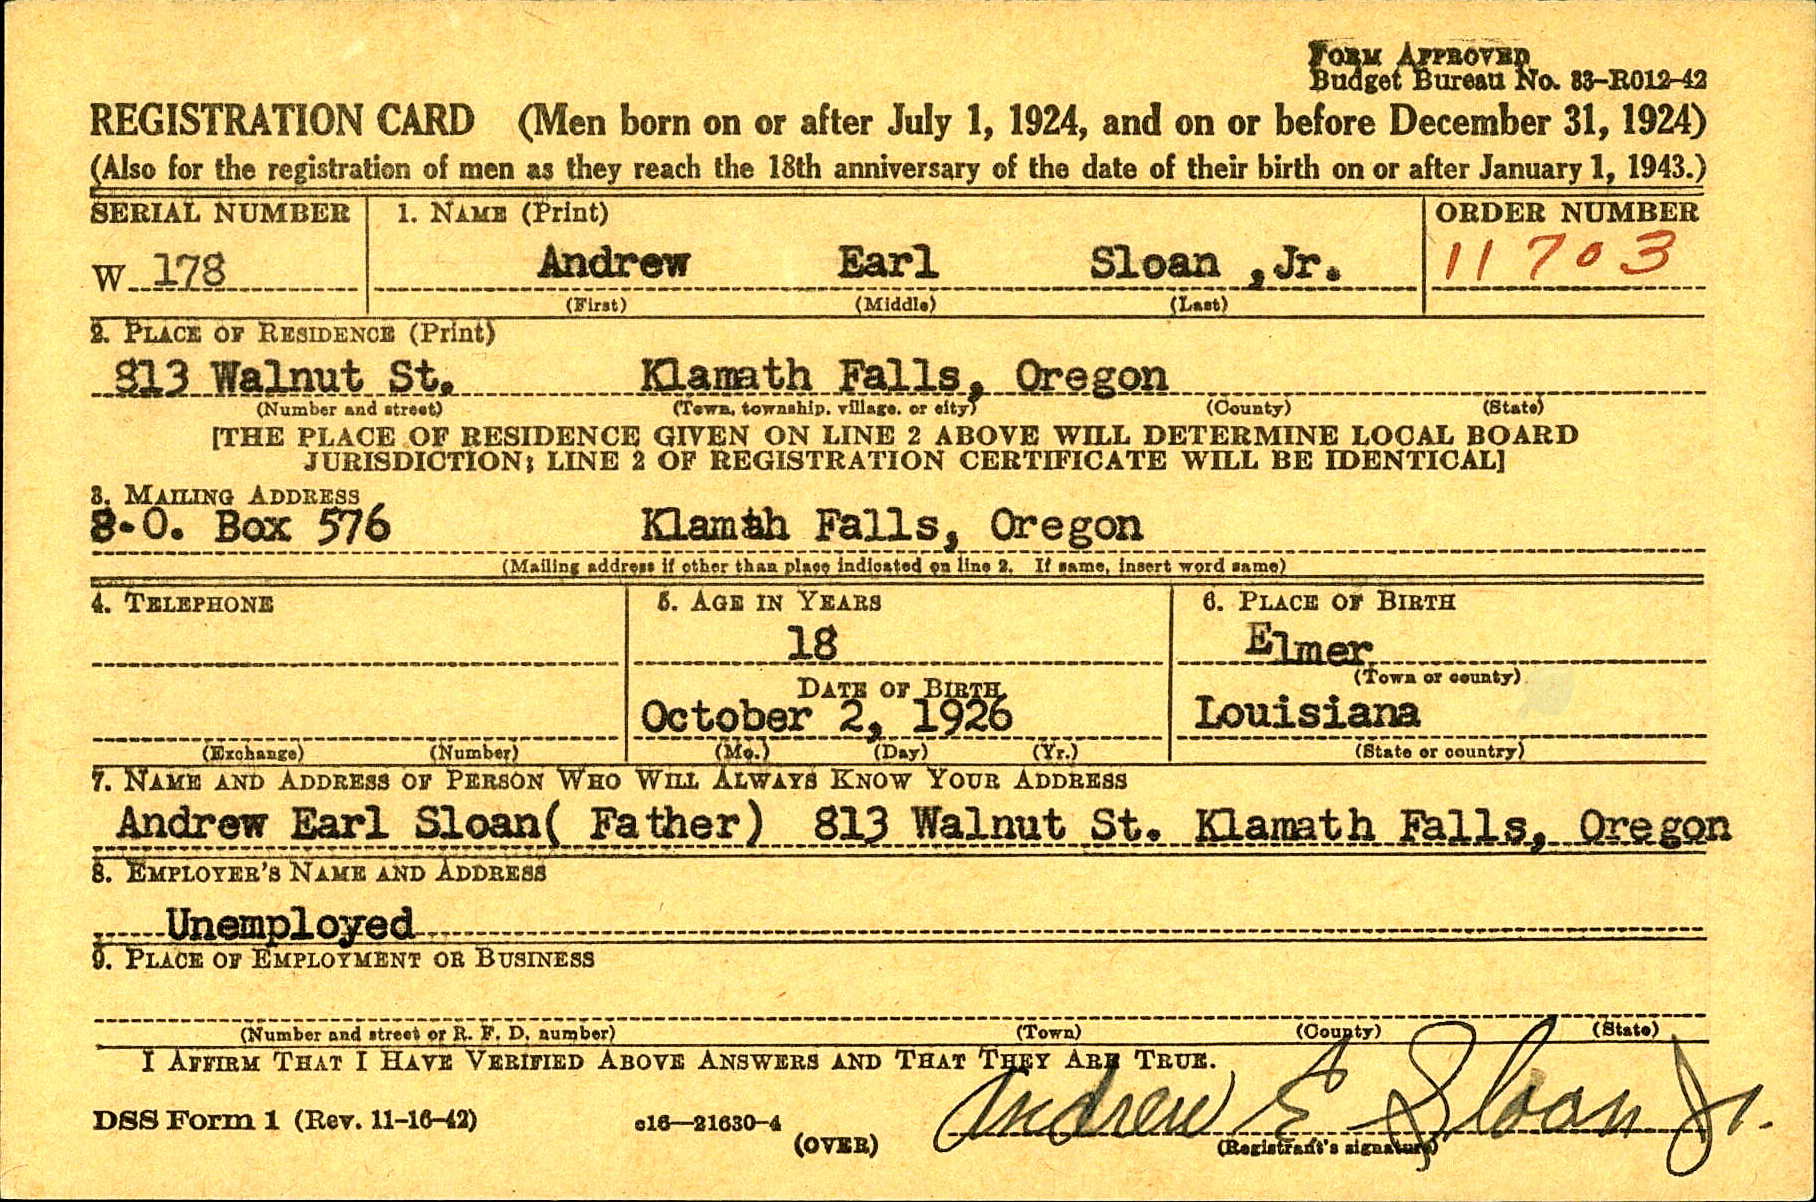 FORM APPROVED
Budget Bureau No. 33-R012-42
REGISTRATION CARD (Men born on or after July 1, 1924, and on or before December 31, 1924)
(Also for the registration of men as they reach the 18th anniversary of the date of their birth on or after January 1, 1943.)
SERIAL NUMBER 1. NAME (Print) ORDER NUMBER
W 178 Andrew Earl Sloan ,Jr. 11703
(First) (Middle) (Last)
2. PLACE OF RESIDENCE (Print)
813 Walnut St. Klamath Falls, Oregon
(Number and street) (Town, township, village, or city) (County) (State)
[THE PLACE OF RESIDENCE GIVEN ON LINE 2 ABOVE WILL DETERMINE LOCAL BOARD
JURISDICTION; LINE 2 OF REGISTRATION CERTIFICATE WILL BE IDENTICAL]
3. MAILING ADDRESS
O. Box 576 Klamath Falls, Oregon
(Mailing address if other than place indicated on line 2. If same, insert word same)
4. TELEPHONE 5. AGE IN YEARS 6. PLACE OF BIRTH
18 Elmer
(Town or county)
DATE OF BIRTH
October 2, 1926 Louisiana
(Exchange) (Number) (Mo.) (Day) (Yr.) (State or country)
7. NAME AND ADDRESS OF PERSON WHO WILL ALWAYS KNOW YOUR ADDRESS
Andrew Earl Sloan( Father) 813 Walnut St. Klamath Falls, Oregon
8. EMPLOYER'S NAME AND ADDRESS
Unemployed
9. PLACE OF EMPLOYMENT OR BUSINESS
(Number and street or R. F. D. number) (Town) (County) (State)
I AFFIRM THAT I HAVE VERIFIED ABOVE ANSWERS AND THAT THEY ARE TRUE.
Andrew E Sloan Jr.
DSS Form 1 (Rev. 11-16-42) c16—21630-4 (OVER) (Registrant's signature)